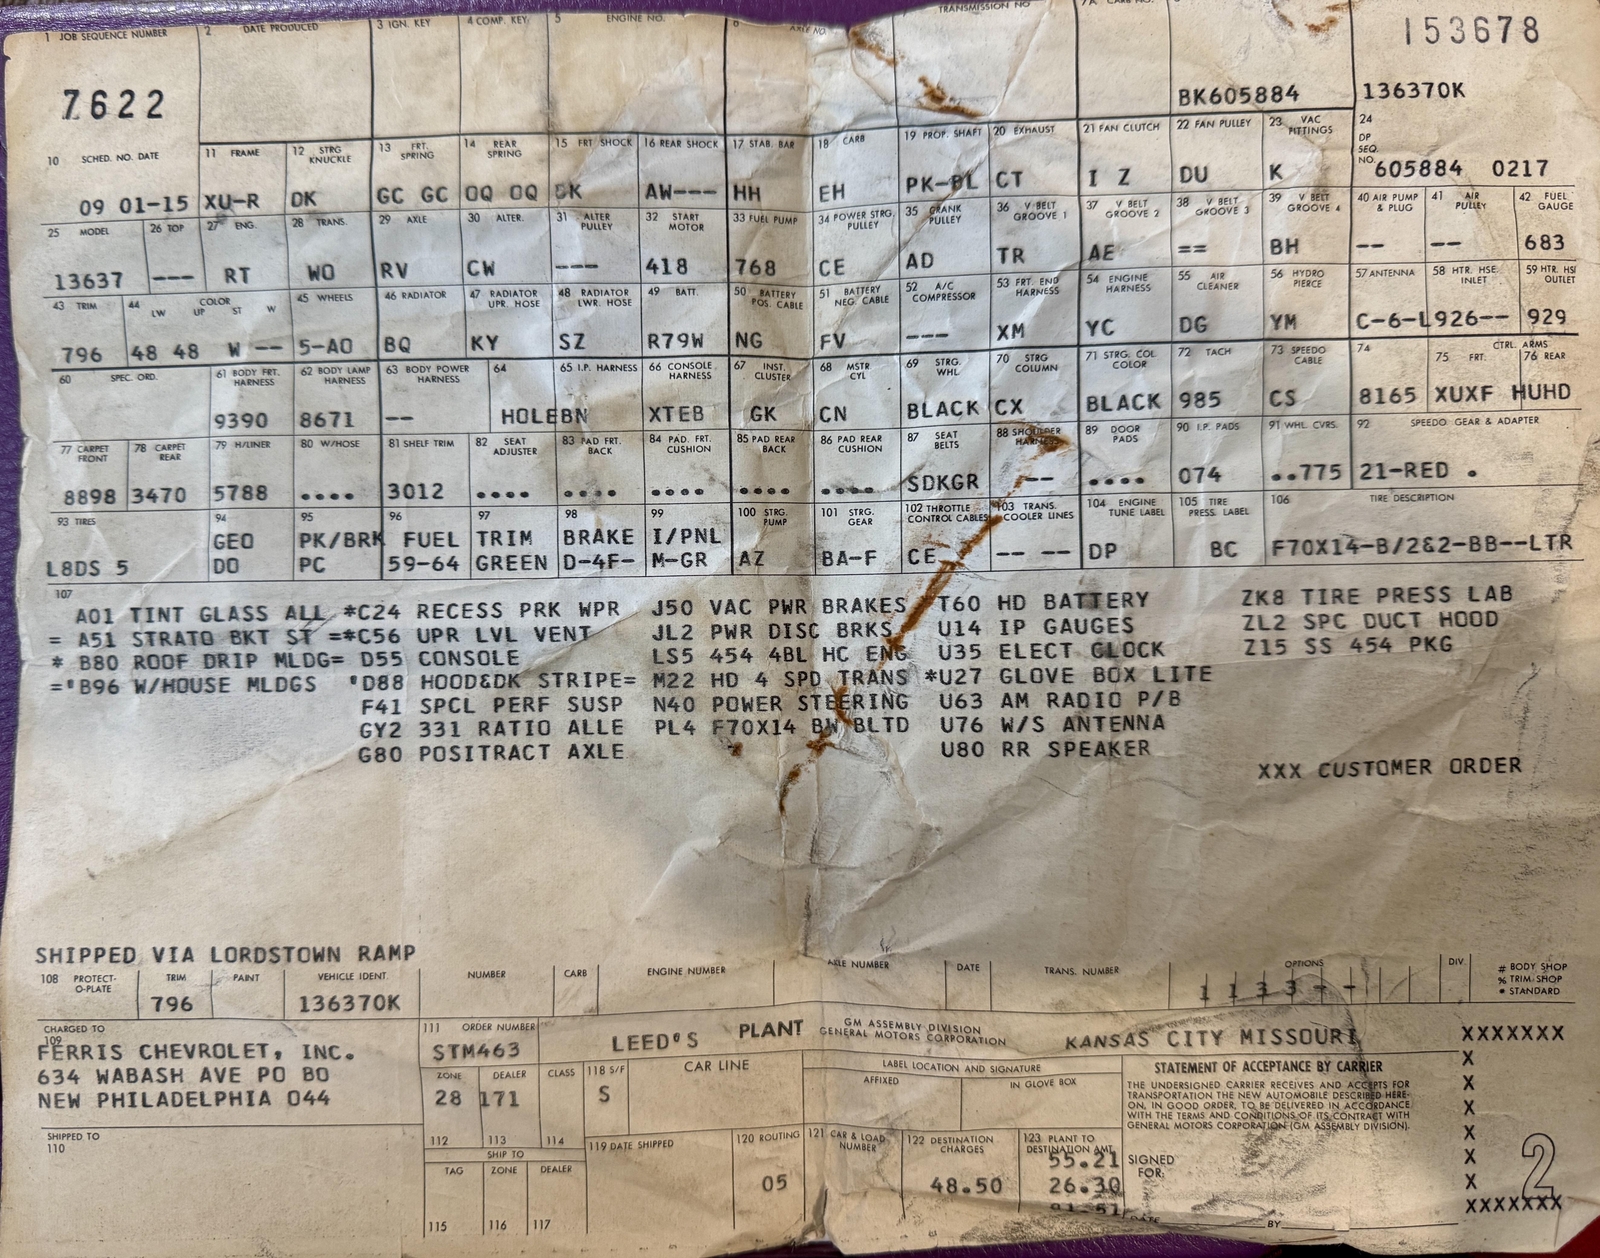 1 JOB SEQUENCE NUMBER 2 DATE PRODUCED 3 IGN. KEY 4 COMP. KEY 5 ENGINE NO. 6 AXLE NO. TRANSMISSION NO 153678
7622 BK605884 136370K
10 SCHED. NO. DATE 11 FRAME 12 STRG KNUCKLE 13 FRT. SPRING 14 REAR SPRING 15 FRT SHOCK 16 REAR SHOCK 17 STAB. BAR 18 CARB 19 PROP. SHAFT 20 EXHAUST 21 FAN CLUTCH 22 FAN PULLEY 23 VAC FITTINGS 24 DP SEQ. NO.
09 01-15 XU-R DK GC GC OQ OQ DK AW--- HH EH PK-BL CT I Z DU K 605884 0217
25 MODEL 26 TOP 27 ENG. 28 TRANS. 29 AXLE 30 ALTER. 31 ALTER PULLEY 32 START MOTOR 33 FUEL PUMP 34 POWER STRG. PULLEY 35 CRANK PULLEY 36 V BELT GROOVE 1 37 V BELT GROOVE 2 38 V BELT GROOVE 3 39 V BELT GROOVE 4 40 AIR PUMP & PLUG 41 AIR PULLEY 42 FUEL GAUGE
13637 --- RT WO RV CW --- 418 768 CE AD TR AE == BH -- -- 683
43 TRIM 44 LW COLOR UP ST W 45 WHEELS 46 RADIATOR 47 RADIATOR UPR. HOSE 48 RADIATOR LWR. HOSE 49 BATT. 50 BATTERY POS. CABLE 51 BATTERY NEG. CABLE 52 A/C COMPRESSOR 53 FRT. END HARNESS 54 ENGINE HARNESS 55 AIR CLEANER 56 HYDRO PIERCE 57 ANTENNA 58 HTR. HSE. INLET 59 HTR. HSE OUTLET
796 48 48 W -- 5-AO BQ KY SZ R79W NG FV --- XM YC DG YM C-6-L 926-- 929
60 SPEC. ORD. 61 BODY FRT. HARNESS 62 BODY LAMP HARNESS 63 BODY POWER HARNESS 64 65 I.P. HARNESS 66 CONSOLE HARNESS 67 INST. CLUSTER 68 MSTR CYL 69 STRG. WHL. 70 STRG COLUMN 71 STRG. COL COLOR 72 TACH 73 SPEEDO CABLE 74 CTRL. ARMS 75 FRT. 76 REAR
9390 8671 -- HOLEBN XTEB GK CN BLACK CX BLACK 985 CS 8165 XUXF HUHD
77 CARPET FRONT 78 CARPET REAR 79 H/LINER 80 W/HOSE 81 SHELF TRIM 82 SEAT ADJUSTER 83 PAD FRT. BACK 84 PAD. FRT. CUSHION 85 PAD REAR BACK 86 PAD REAR CUSHION 87 SEAT BELTS 88 SHOULDER HARNESS 89 DOOR PADS 90 I.P. PADS 91 WHL. CVRS. 92 SPEEDO GEAR & ADAPTER
8898 3470 5788 •••• 3012 •••• •••• •••• •••• •••• SDKGR -- •••• 074 ••775 21-RED •
93 TIRES 94 95 96 97 98 99 100 STRG. PUMP 101 STRG. GEAR 102 THROTTLE CONTROL CABLES 103 TRANS. COOLER LINES 104 ENGINE TUNE LABEL 105 TIRE PRESS. LABEL 106 TIRE DESCRIPTION
GEO PK/BRK FUEL TRIM BRAKE I/PNL
L8DS 5 DO PC 59-64 GREEN D-4F- M-GR AZ BA-F CE -- -- DP BC F70X14-B/2&2-BB--LTR
107
A01 TINT GLASS ALL *C24 RECESS PRK WPR J50 VAC PWR BRAKES T60 HD BATTERY ZK8 TIRE PRESS LAB
= A51 STRATO BKT ST =*C56 UPR LVL VENT JL2 PWR DISC BRKS U14 IP GAUGES ZL2 SPC DUCT HOOD
* B80 ROOF DRIP MLDG= D55 CONSOLE LS5 454 4BL HC ENG U35 ELECT CLOCK Z15 SS 454 PKG
='B96 W/HOUSE MLDGS 'D88 HOOD&DK STRIPE= M22 HD 4 SPD TRANS *U27 GLOVE BOX LITE
F41 SPCL PERF SUSP N40 POWER STEERING U63 AM RADIO P/B
GY2 331 RATIO ALLE PL4 F70X14 BW BLTD U76 W/S ANTENNA
G80 POSITRACT AXLE U80 RR SPEAKER
XXX CUSTOMER ORDER
SHIPPED VIA LORDSTOWN RAMP
108 PROTECT-O-PLATE TRIM PAINT VEHICLE IDENT. NUMBER CARB ENGINE NUMBER AXLE NUMBER DATE TRANS. NUMBER OPTIONS DIV. # BODY SHOP
% TRIM SHOP
• STANDARD
796 136370K 1133--
CHARGED TO 109 111 ORDER NUMBER LEED'S PLANT GM ASSEMBLY DIVISION GENERAL MOTORS CORPORATION KANSAS CITY MISSOURI XXXXXXX
FERRIS CHEVROLET, INC. STM463
634 WABASH AVE PO BO
NEW PHILADELPHIA 044
ZONE DEALER CLASS 118 S/F CAR LINE LABEL LOCATION AND SIGNATURE
AFFIXED IN GLOVE BOX
28 171 S
STATEMENT OF ACCEPTANCE BY CARRIER
THE UNDERSIGNED CARRIER RECEIVES AND ACCEPTS FOR
TRANSPORTATION THE NEW AUTOMOBILE DESCRIBED HERE-
ON, IN GOOD ORDER, TO BE DELIVERED IN ACCORDANCE
WITH THE TERMS AND CONDITIONS OF ITS CONTRACT WITH
GENERAL MOTORS CORPORATION (GM ASSEMBLY DIVISION).
X
X
X
X
X
X
XXXXXXX
2
SHIPPED TO 110
112 113 114 119 DATE SHIPPED 120 ROUTING 121 CAR & LOAD NUMBER 122 DESTINATION CHARGES 123 PLANT TO DESTINATION AMT.
SHIP TO
TAG ZONE DEALER
05 48.50 55.21
26.30
SIGNED FOR:
115 116 117
BY